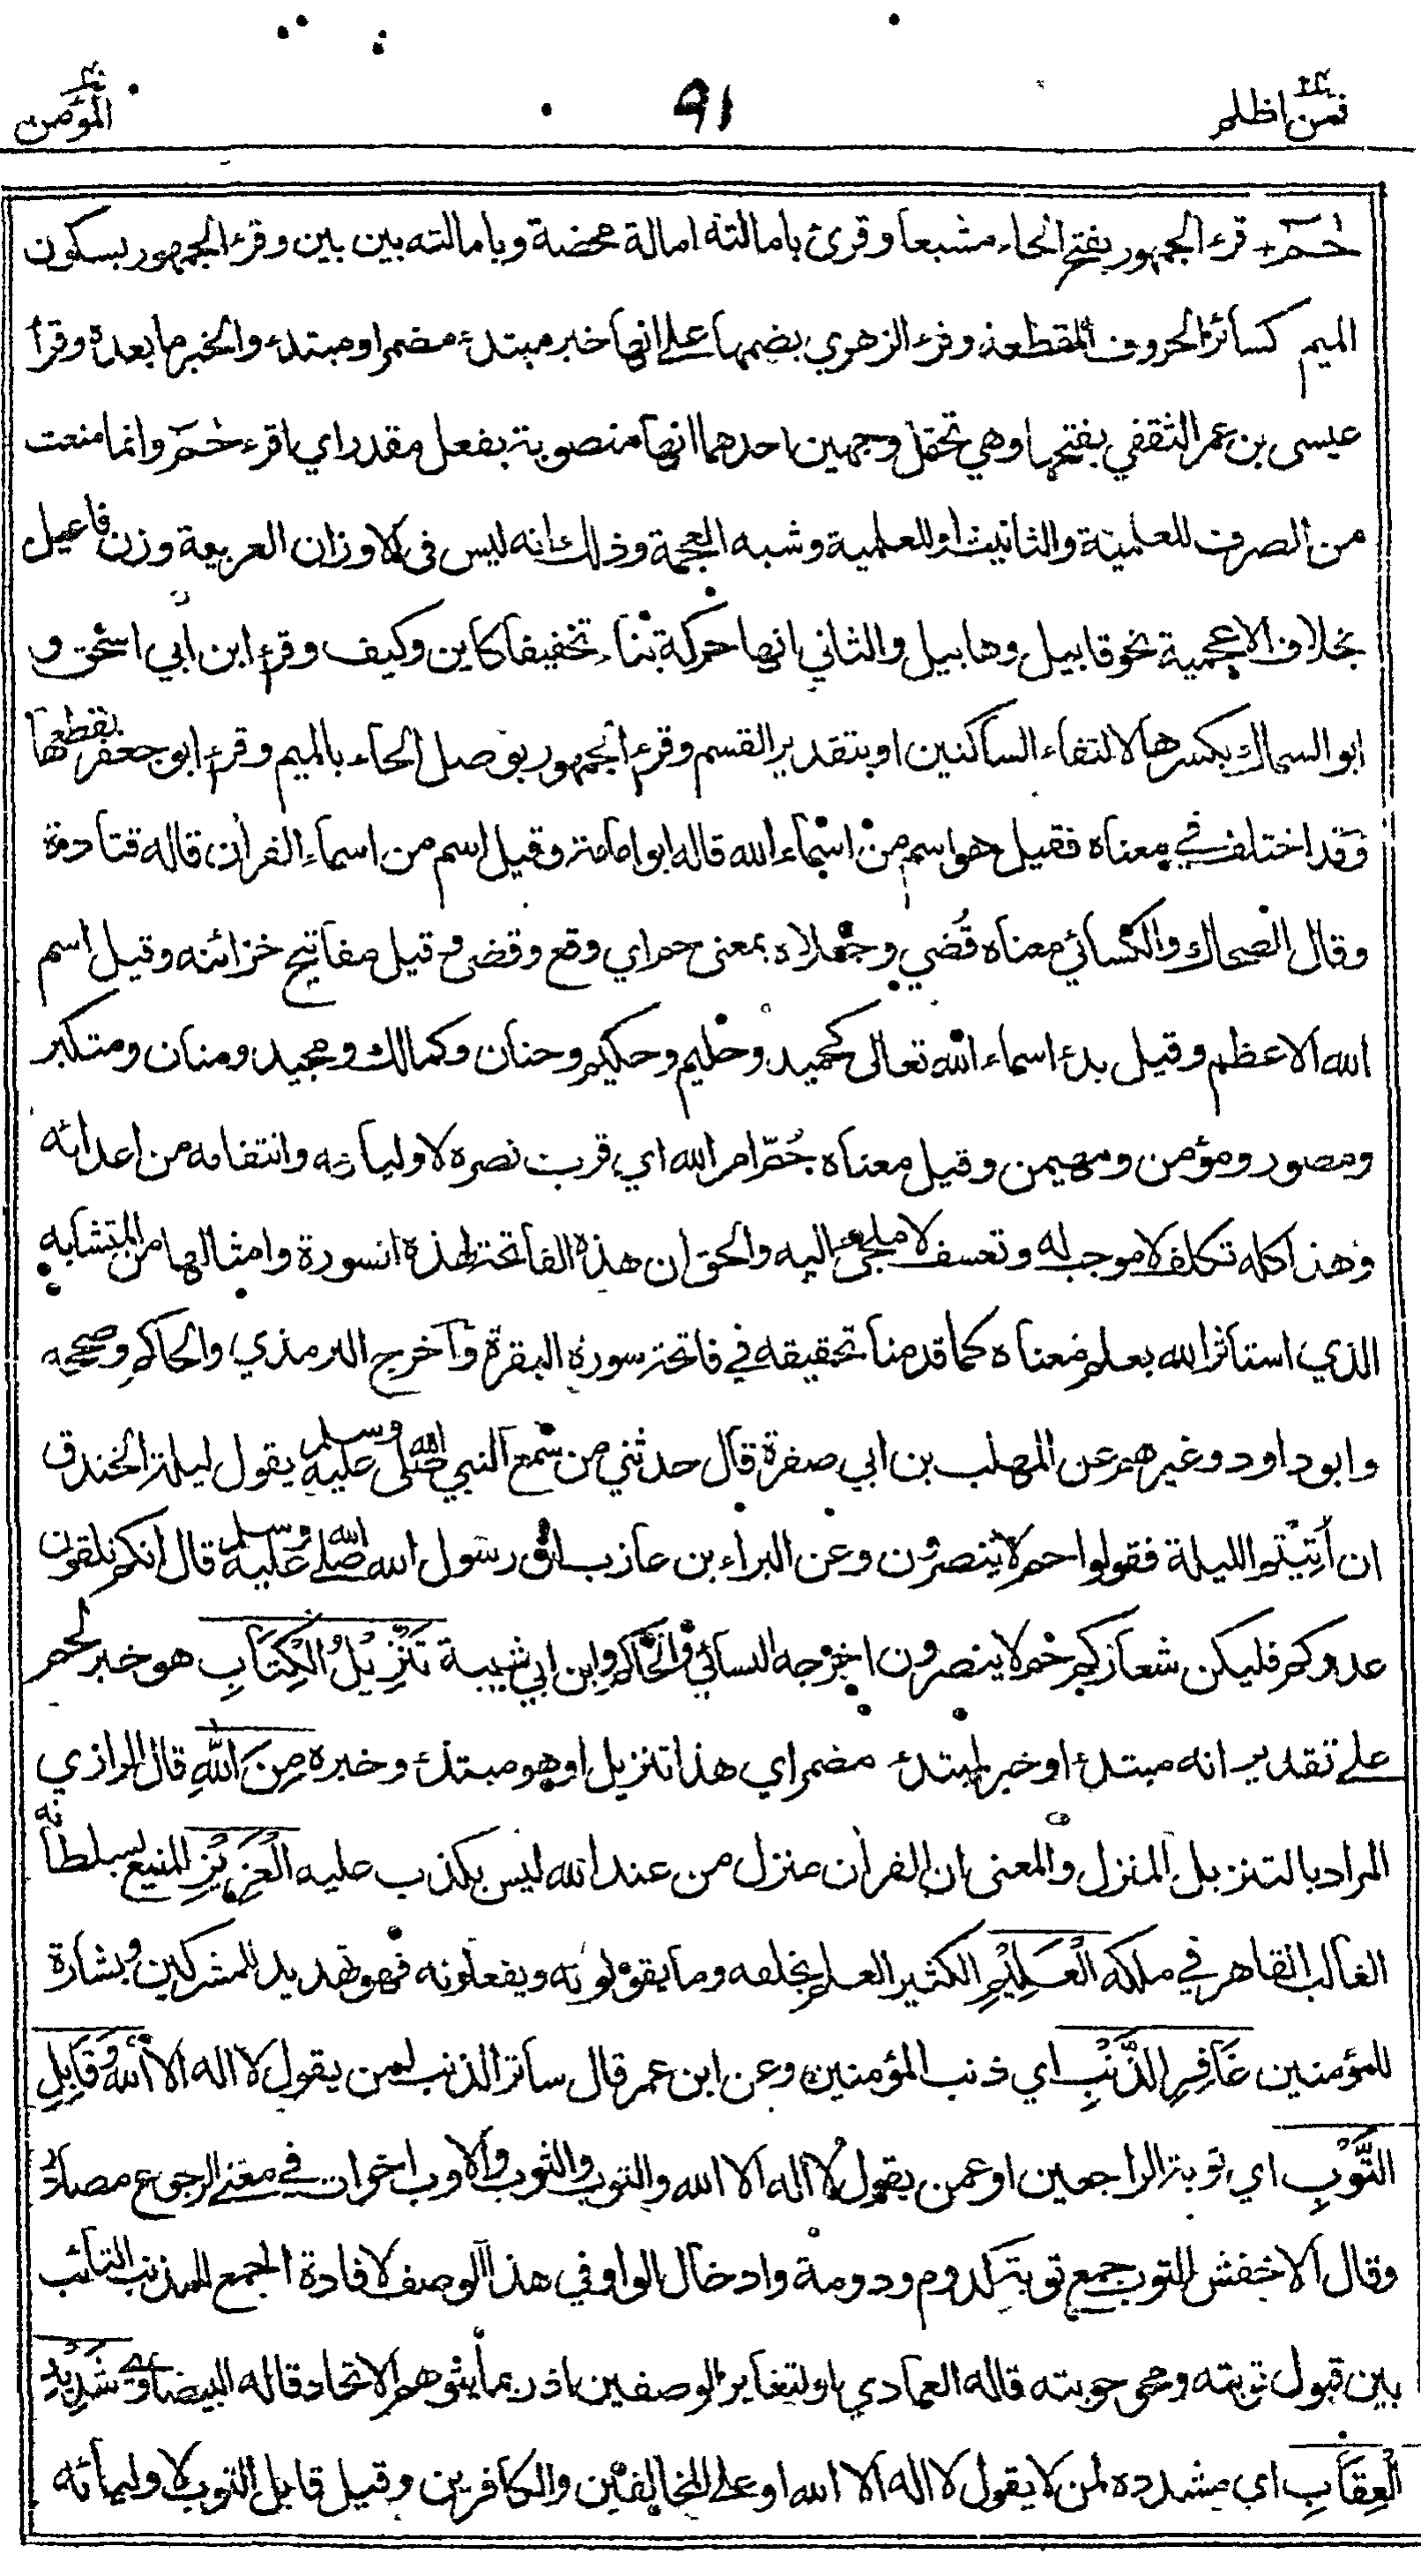 فمن اظلم ٢٤
٩١
المؤمن ٤٠
حٰمٓ قرء الجمهور بفتح الحاء مشبعا وقرئ بامالته امالة محضة وبامالته بين بين وقرء الجمهور بسكون
الميم كسائر الحروف المقطعة وقرء الزهري بضمها على انها خبر مبتدء مضمر او مبتدء والخبر ما بعده وقرأ
عيسى بن عمر الثقفي بفتحها وهي تحتمل وجهين احدهما انها منصوبة بفعل مقدر اي اقرء حٰمٓ وانما منعت
من الصرف للعلمية والتانيث او للعلمية وشبه العجمة وذلك انه ليس في الاوزان العربية وزن فاعيل
بخلاف الاعجمية نحو قابيل وهابيل والثاني انها حركة بناء تخفيفا كاين وكيف وقرء ابن ابي اسحق و
ابو السماك بكسرها لالتقاء الساكنين او بتقدير القسم وقرء الجمهور بوصل الحاء بالميم وقرء ابو جعفر بقطعها
وقد اختلف في معناه فقيل هو اسم من اسماء الله قاله ابو امامة وقيل اسم من اسماء القرأن قاله قتادة
وقال الضحاك والكسائي معناه قُضي وجعلاه بمعنى حم اي وقع وقضى وقيل مفاتيح خزائنه وقيل اسم
الله الاعظم وقيل بدء اسماء الله تعالى كحميد وحليم وحكيم وحنان وكمالك ومجيد ومنان ومتكبر
ومصور ومؤمن ومهيمن وقيل معناه حُمّ امر الله اي قرب نصره لاوليائه وانتقامه من اعدائه
وهذا كله تكلف لا موجب له وتعسف لا ملجئ اليه والحق ان هذه الفاتحة لهذه السورة وامثالها من المتشابه
الذي استاثر الله بعلم معناه كما قدمنا تحقيقه في فاتحة سورة البقرة وأخرج الترمذي والحاكم وصححه
وابو داود وغيرهم عن المهلب بن ابي صفرة قال حدثني من سمع النبي صلى الله عليه وسلم يقول ليلة الخندق
ان أُتِيْتم الليلة فقولوا حم لا ينصرون وعن البراء بن عازب ان رسول الله صلى الله عليه وسلم قال انكم تلقون
عدوكم فليكن شعاركم حم لا ينصرون اخرجه النسائي والحاكم وابن ابي شيبة تَنْزِيْلُ الْكِتَابِ هو خبر لحم
على تقدير انه مبتدء او خبر لمبتدء مضمر اي هذا تنزيل او هو مبتدء وخبره مِنَ اللهِ قال الرازي
المراد بالتنزيل المنزل والمعنى ان القرأن منزل من عند الله ليس بكذب عليه الْعَزِيْزِ المنيع بسلطانه
الغالب القاهر في ملكه الْعَلِيْمِ الكثير العلم بخلقه وما يقولونه ويفعلونه فهو تهديد للمشركين وبشارة
للمؤمنين غَافِرِ الذَّنْبِ اي ذنب المؤمنين وعن ابن عمر قال ساتر الذنب لمن يقول لا اله الا الله وَقَابِلِ
التَّوْبِ اي توبة الراجعين او عمن يقول لا اله الا الله والتوب والثوب والاوب اخوات في معنى الرجوع مصادر
وقال الاخفش التوب جمع توبة كدوم ودومة وادخال الواو في هذا الوصف لافادة الجمع للمذنب التائب
بين قبول توبته ومحو حوبته قاله العمادي او لتغاير الوصفين اذ ربما يتوهم الاتحاد قاله البيضاوي شَدِيْدِ
الْعِقَابِ اي مشدده لمن لا يقول لا اله الا الله او على المخالفين والكافرين وقيل قابل التوب لاوليائه